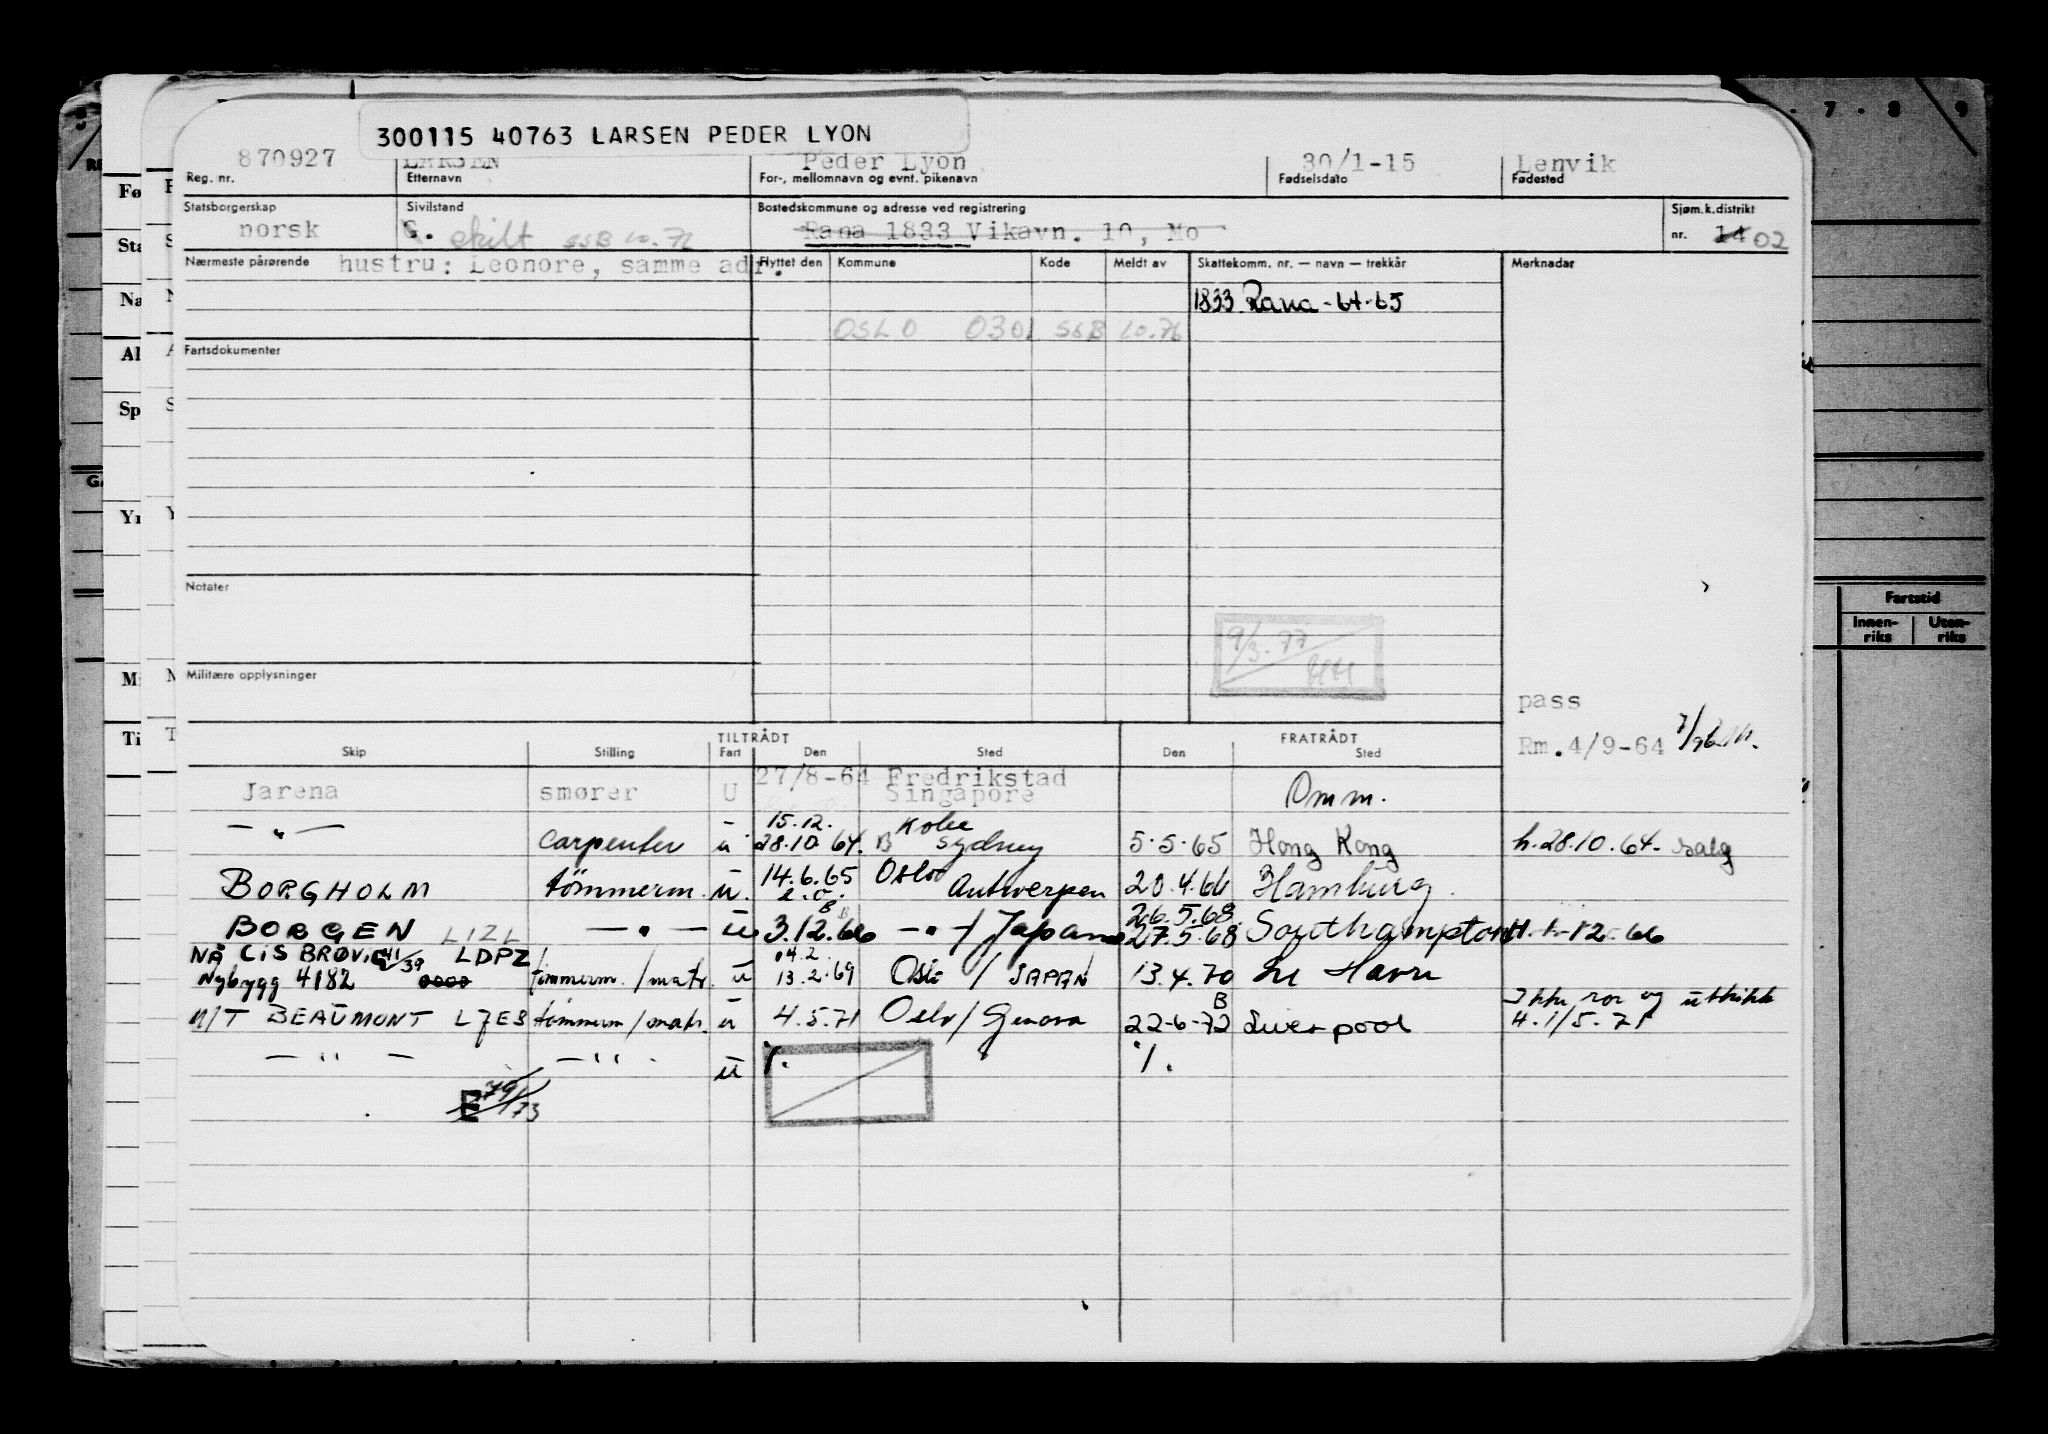 300115 40763 LARSEN PEDER LYON
870927 LARSEN Peder Lyon 30/1-15 Lenvik
Reg. nr. Etternavn For-, mellomnavn og evnt. pikenavn Fødselsdato Fødested
Statsborgerskap Sivilstand Bostedskommune og adresse ved registrering Sjøm.k.distrikt
norsk G. skilt SSB 10.76 Rana 1833 Vikavn. 10, Mo nr. 14 02
Nærmeste pårørende hustru: Leonore, samme adr. Flyttet den Kommune Kode Meldt av Skattekomm. nr. — navn — trekkår Merknader
1833 Rana - 64-65
OSLO 0301 SSB 10.76
Fartsdokumenter
Notater
9/3.77
HH
Militære opplysninger
pass
Rm. 4/9-64
TILTRÅDT FRATRÅDT
Skip Stilling Fart Den Sted Den Sted
27/8-64 Fredrikstad
Jarena smører U Singapore Omm.
15.12. Kobe
— " — carpenter u 28.10.64. B Sydney 5.5.65 Hong Kong h.28.10.64. salg
BORGHOLM tømmerm. u. 14.6.65 Oslo Antwerpen 20.4.66 Hamburg.
26.5.68
BORGEN LIZL — " — u 3.12.66 — " — / Japan 27.5.68 Southampton H. 1-12.66
NÅ CIS BRØVIG 41/39 LDPZ 04.2.
Nybygg 4182 tømmerm. / matr. u 13.2.69 Oslo / JAPAN 13.4.70 Le Havre
Ikke ror og utkikk
M/T BEAUMONT LJES tømmerm / matr. u 4.5.71 Oslo / Genova 22-6-72 B Liverpool H. 1/5.71
— " — — " — u
E 79/73
Fartstid
Innen-riks Uten-riks
7 - 8 9
Fø
Sta
Na
Al
Sp
Yr
M
Ti